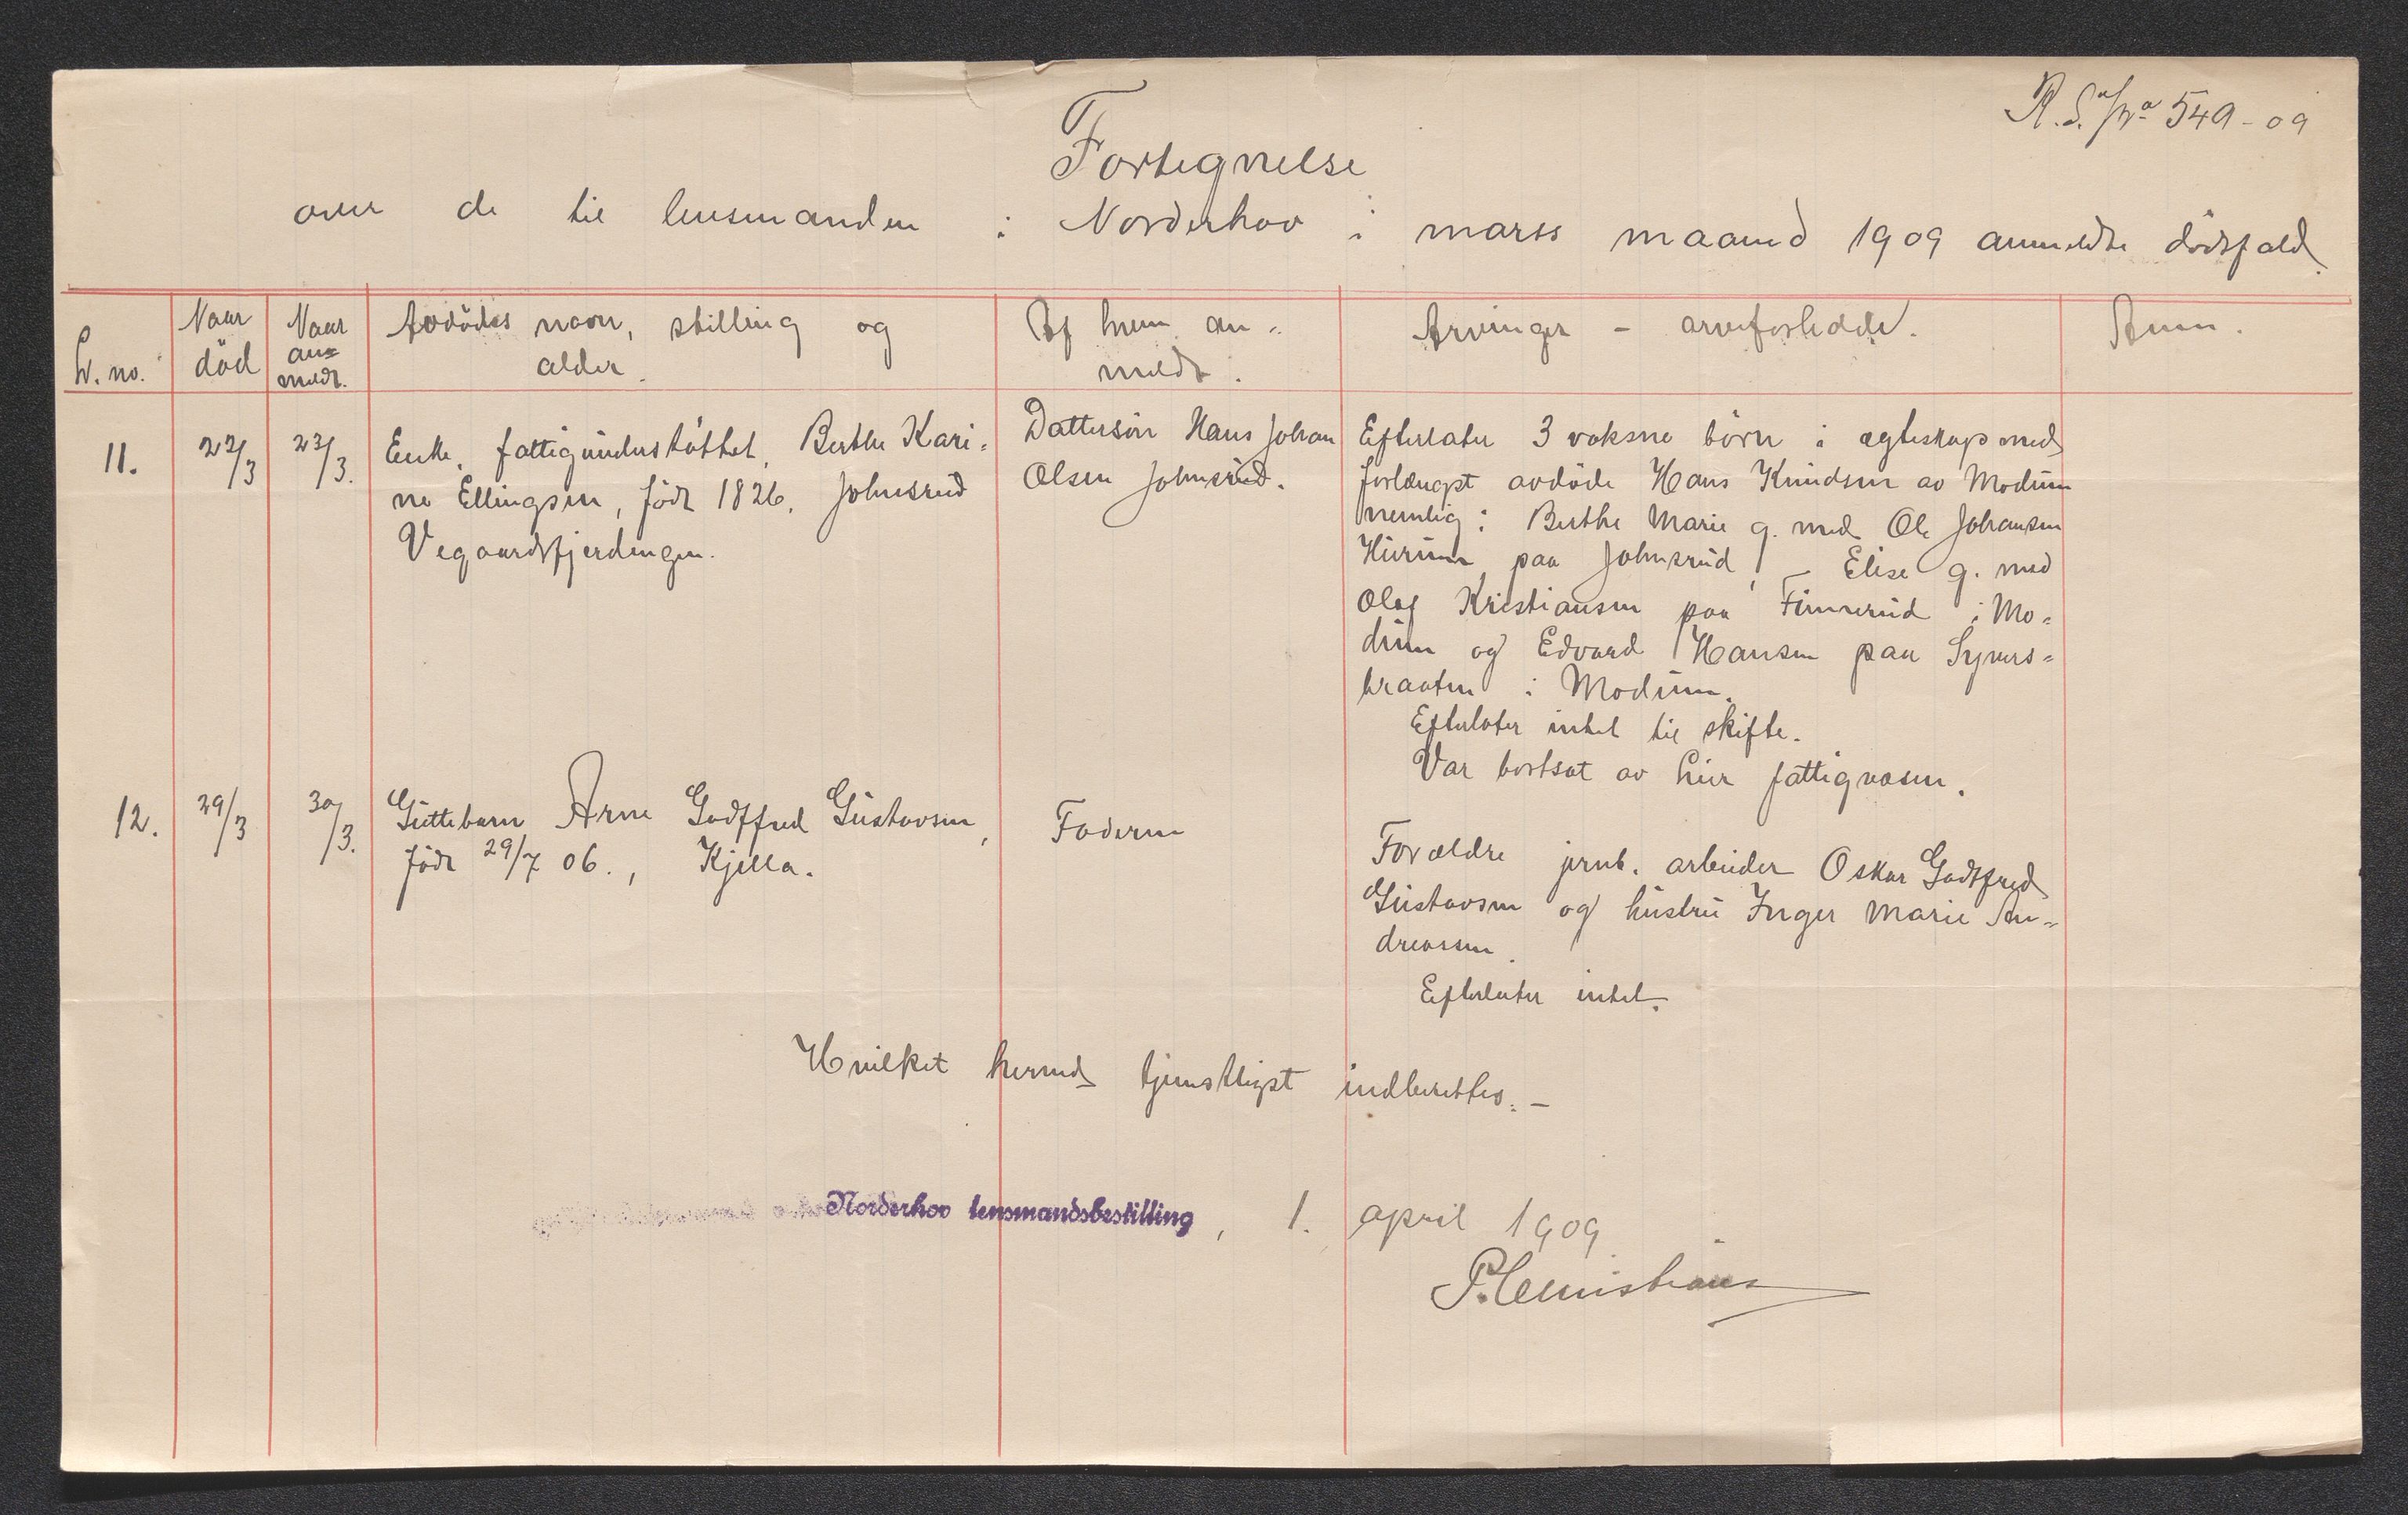 R. S. 549 - 09
Fortegnelse
over de til lensmanden i Norderhov i mars maaned 1909 anmeldte dödsfald.
L. no.
Naar
död
Naar
an=
meldt.
Avdödes navn, stilling og
alder.
Af hvem an-
meldt.
Arvinger - arveforhold.
Anm.
11.
22/3
23/3.
Enke, fattigunderstöttet, Berthe Kari-
ne Ellingsen, född 1826, Johnsrud
Vegaardsfjerdingen.
Dattersön Hans Johan
Olsen Johnsrud.
Efterlater 3 voksne börn i egteskap med
forlængst avdöde Hans Knudsen av Modum
nemlig: Berthe Marie g. med Ole Johansen
Hurum paa Johnsrud, - Elise g. med
Olaf Kristiansen paa Finnerud i Mo-
dum og Edvard Hansen paa Syvers-
braaten i Modum.
Efterlater intet til skifte.
Var bortsat av hier fattigvæsen.
12.
29/3
30/3.
Guttebarn Arne Godtfred Gustavsen,
född 29/7 06., Kjella.
Faderen
Forældre jernb. arbeider Oskar Godtfred
Gustavsen og hustru Inger Marie An-
dreassen.
Efterlater intet.
Hvilket herved tjenstligst indberettes. -
Norderhov lensmandsbestilling, 1. april 1909
P. Christians